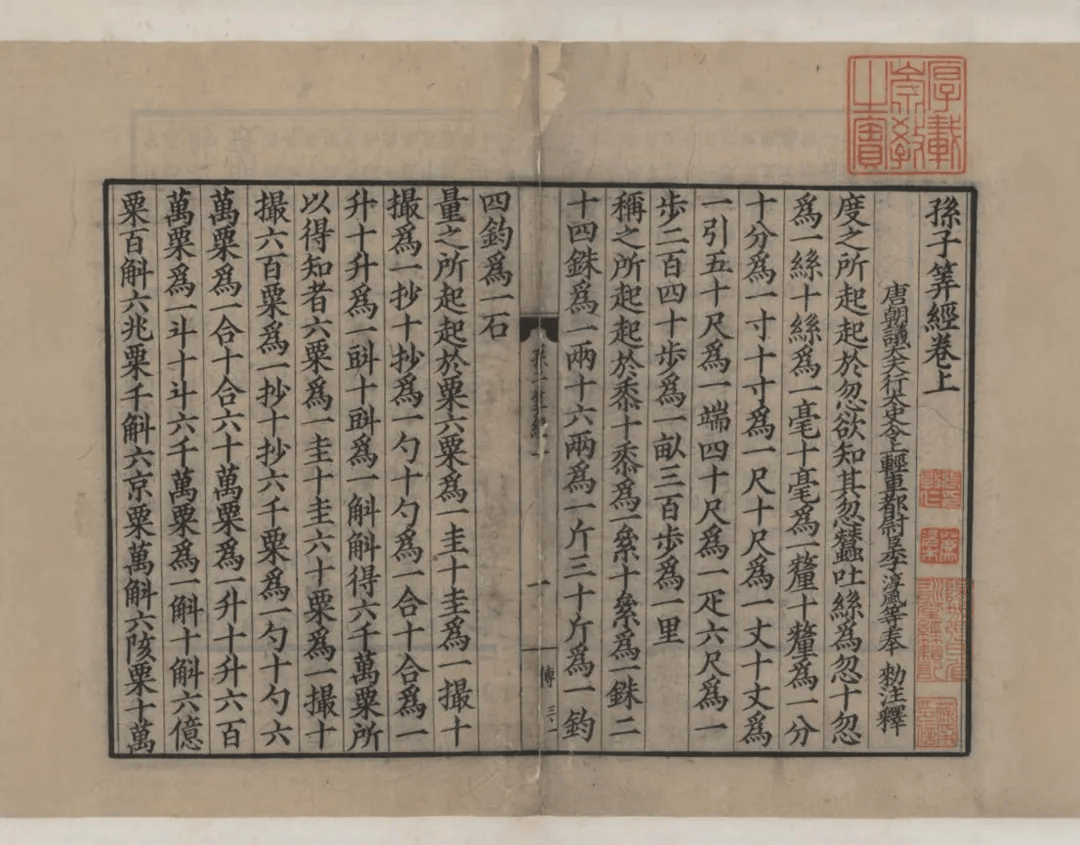 孫子筭經卷上
唐朝議大夫行太史令上輕車都尉臣李淳風等奉 勑注釋
度之所起起於忽欲知其忽蠶吐絲為忽十忽
爲一絲十絲爲一毫十毫爲一釐十釐爲一分
十分爲一寸十寸爲一尺十尺爲一丈十丈爲
一引五十尺爲一端四十尺爲一疋六尺爲一
步二百四十步爲一畝三百步爲一里
稱之所起起於黍十黍爲一絫十絫爲一銖二
十四銖爲一兩十六兩爲一斤三十斤爲一鈞
四鈞爲一石
量之所起起於粟六粟爲一圭十圭爲一撮十
撮爲一抄十抄爲一勺十勺爲一合十合爲一
升十升爲一㪷十㪷爲一斛斛得六千萬粟所
以得知者六粟爲一圭十圭六十粟爲一撮十
撮六百粟爲一抄十抄六千粟爲一勺十勺六
萬粟爲一合十合六十萬粟爲一升十升六百
萬粟爲一斗十斗六千萬粟爲一斛十斛六億
粟百斛六兆粟千斛六京粟萬斛六陔粟十萬
厚載
崇教
之寶
一
傅
三